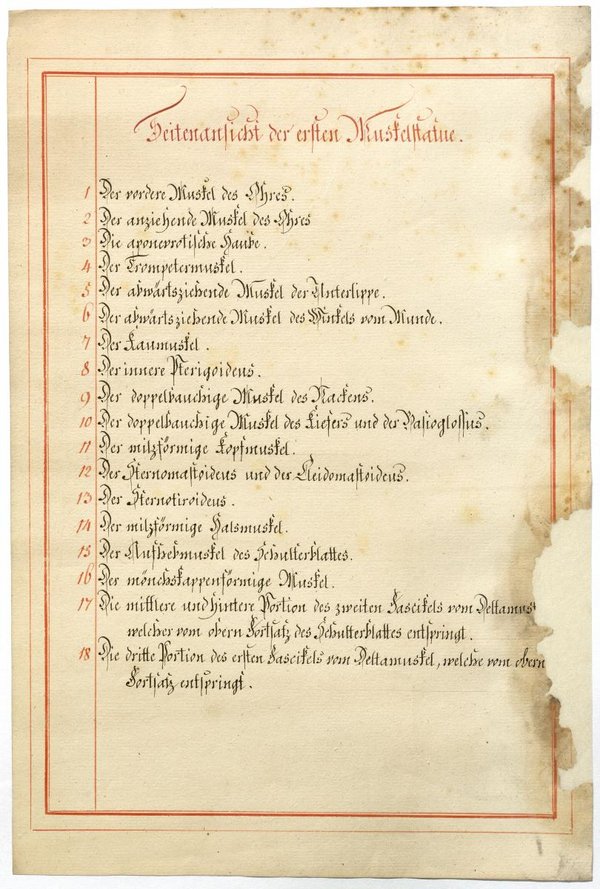 Seitenansicht der ersten Muskelstatue.
1 Der vordere Muskel des Ohres.
2 Der anziehende Muskel des Ohres
3 Die aponevrotische Haube.
4 Der Trompetermuskel.
5 Der abwärtsziehende Muskel der Unterlippe.
6 Der abwärtsziehende Muskel des Winkels vom Munde.
7 Der Kaumuskel.
8 Der innere Pterigoideus.
9 Der doppelbauchige Muskel des Nackens.
10 Der doppelbauchige Muskel des Kiefers und der Basioglossus.
11 Der milzförmige Kopfmuskel.
12 Der Sternomastoideus und der Kleidomastoideus.
13 Der Sternotiroideus.
14 Der milzförmige Halsmuskel.
15 Der Aufhebmuskel des Schulterblattes.
16 Der mönchskappenförmige Muskel.
17 Die mittlere und hintere Portion des zweiten Fascikels vom Deltamus
welcher vom obern Fortsatz des Schulterblattes entspringt.
18 Die dritte Portion des ersten Fascikels vom Deltamuskel, welche vom obern
Fortsatz entspringt.